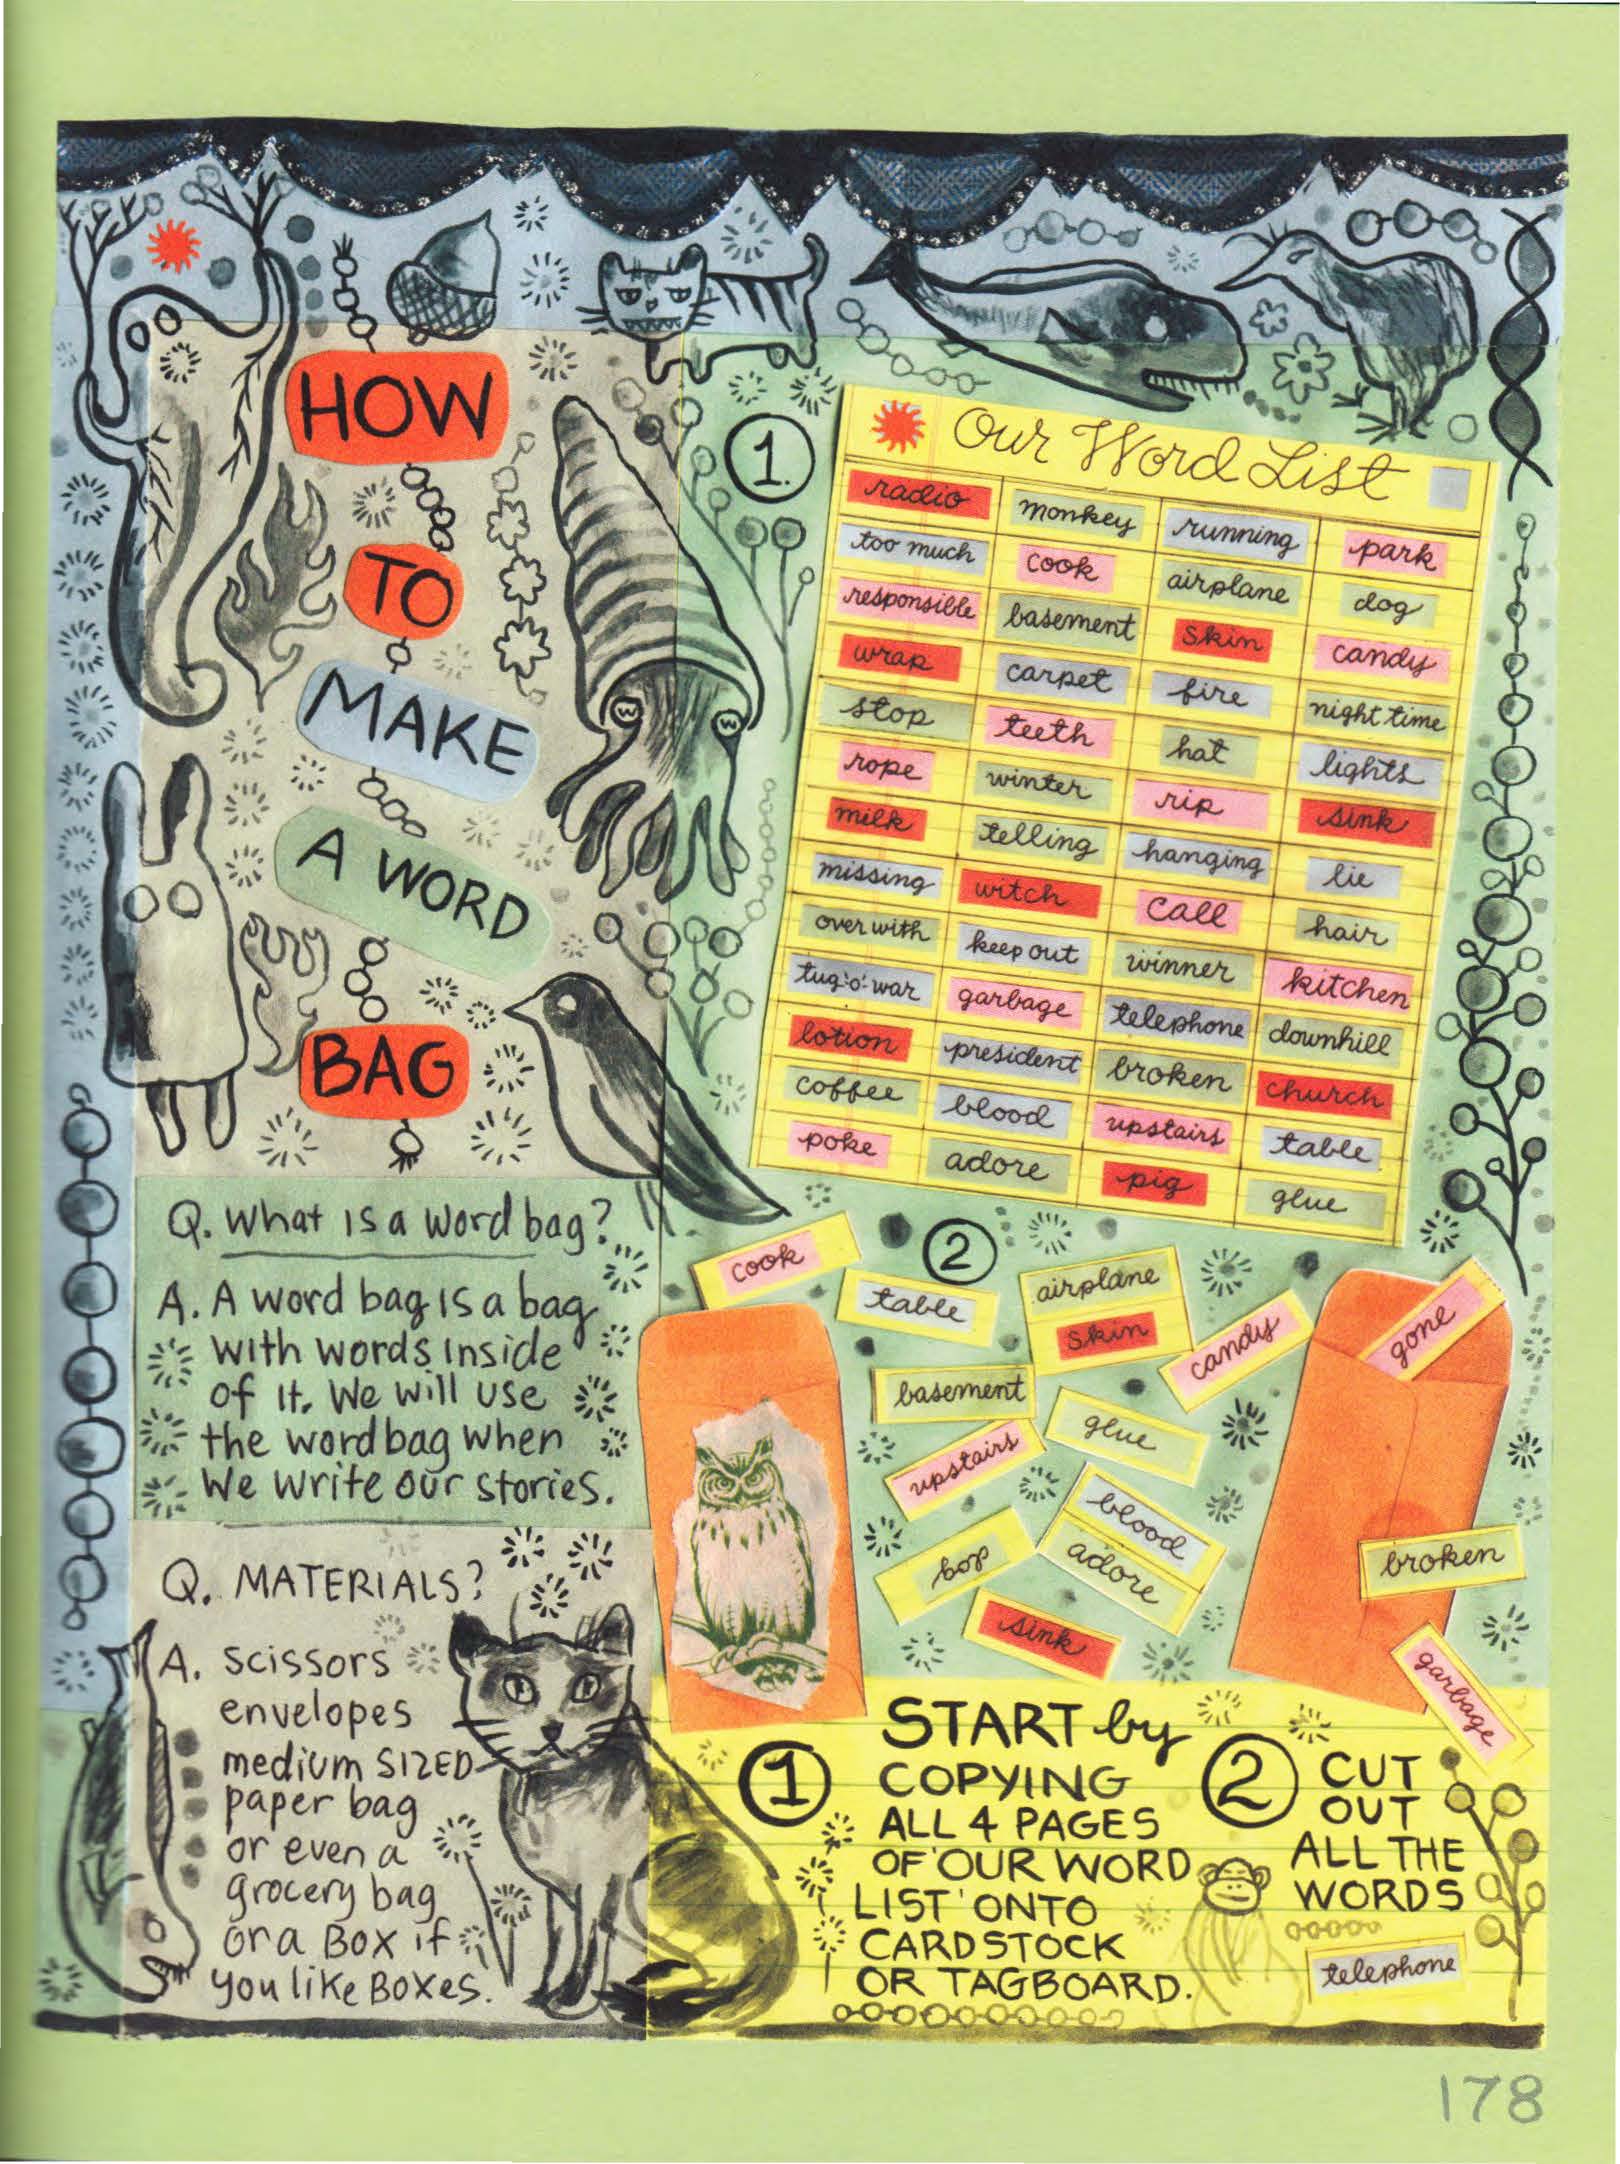 HOW
TO
MAKE
A WORD
BAG
Q. What is a word bag?
A. A word bag is a bag
with words inside
of it. We will use
the wordbag when
we write our stories.
Q. MATERIALS?
A. scissors
envelopes
medium SIZED
paper bag
or even a
grocery bag
or a BOX if
you like BOXes.
1.
Our Word List
radio monkey running park
too much cook airplane dog
responsible basement skin candy
wrap carpet fire night time
stop teeth hat lights
rope winter rip sink
milk telling hanging lie
missing witch call hair
over with keep out winner kitchen
tug'o'war garbage telephone downhill
lotion president broken church
coffee blood upstairs table
poke adore pig glue
2
cook
table
airplane
skin
candy
gone
basement
glue
upstairs
blood
adore
bop
broken
sink
garbage
1 START by
COPYING
ALL 4 PAGES
OF 'OUR WORD
LIST' ONTO
CARDSTOCK
OR TAGBOARD.
2 CUT
OUT
ALL THE
WORDS
telephone
178